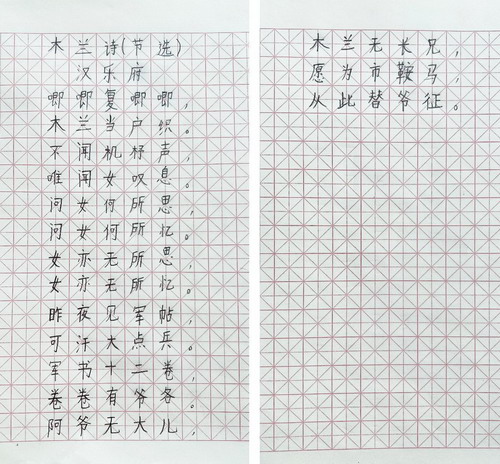 木兰诗(节选)
汉乐府
唧唧复唧唧，
木兰当户织。
不闻机杼声，
唯闻女叹息。
问女何所思，
问女何所忆。
女亦无所思，
女亦无所忆。
昨夜见军帖，
可汗大点兵。
军书十二卷，
卷卷有爷各。
阿爷无大儿，
木兰无长兄，
愿为市鞍马，
从此替爷征。